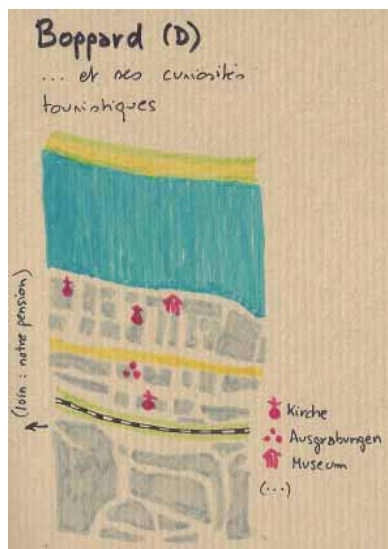 Boppard (D)
... et ses curiosités
touristiques
(loin : notre pension)
Kirche
Ausgrabungen
Museum
(...)